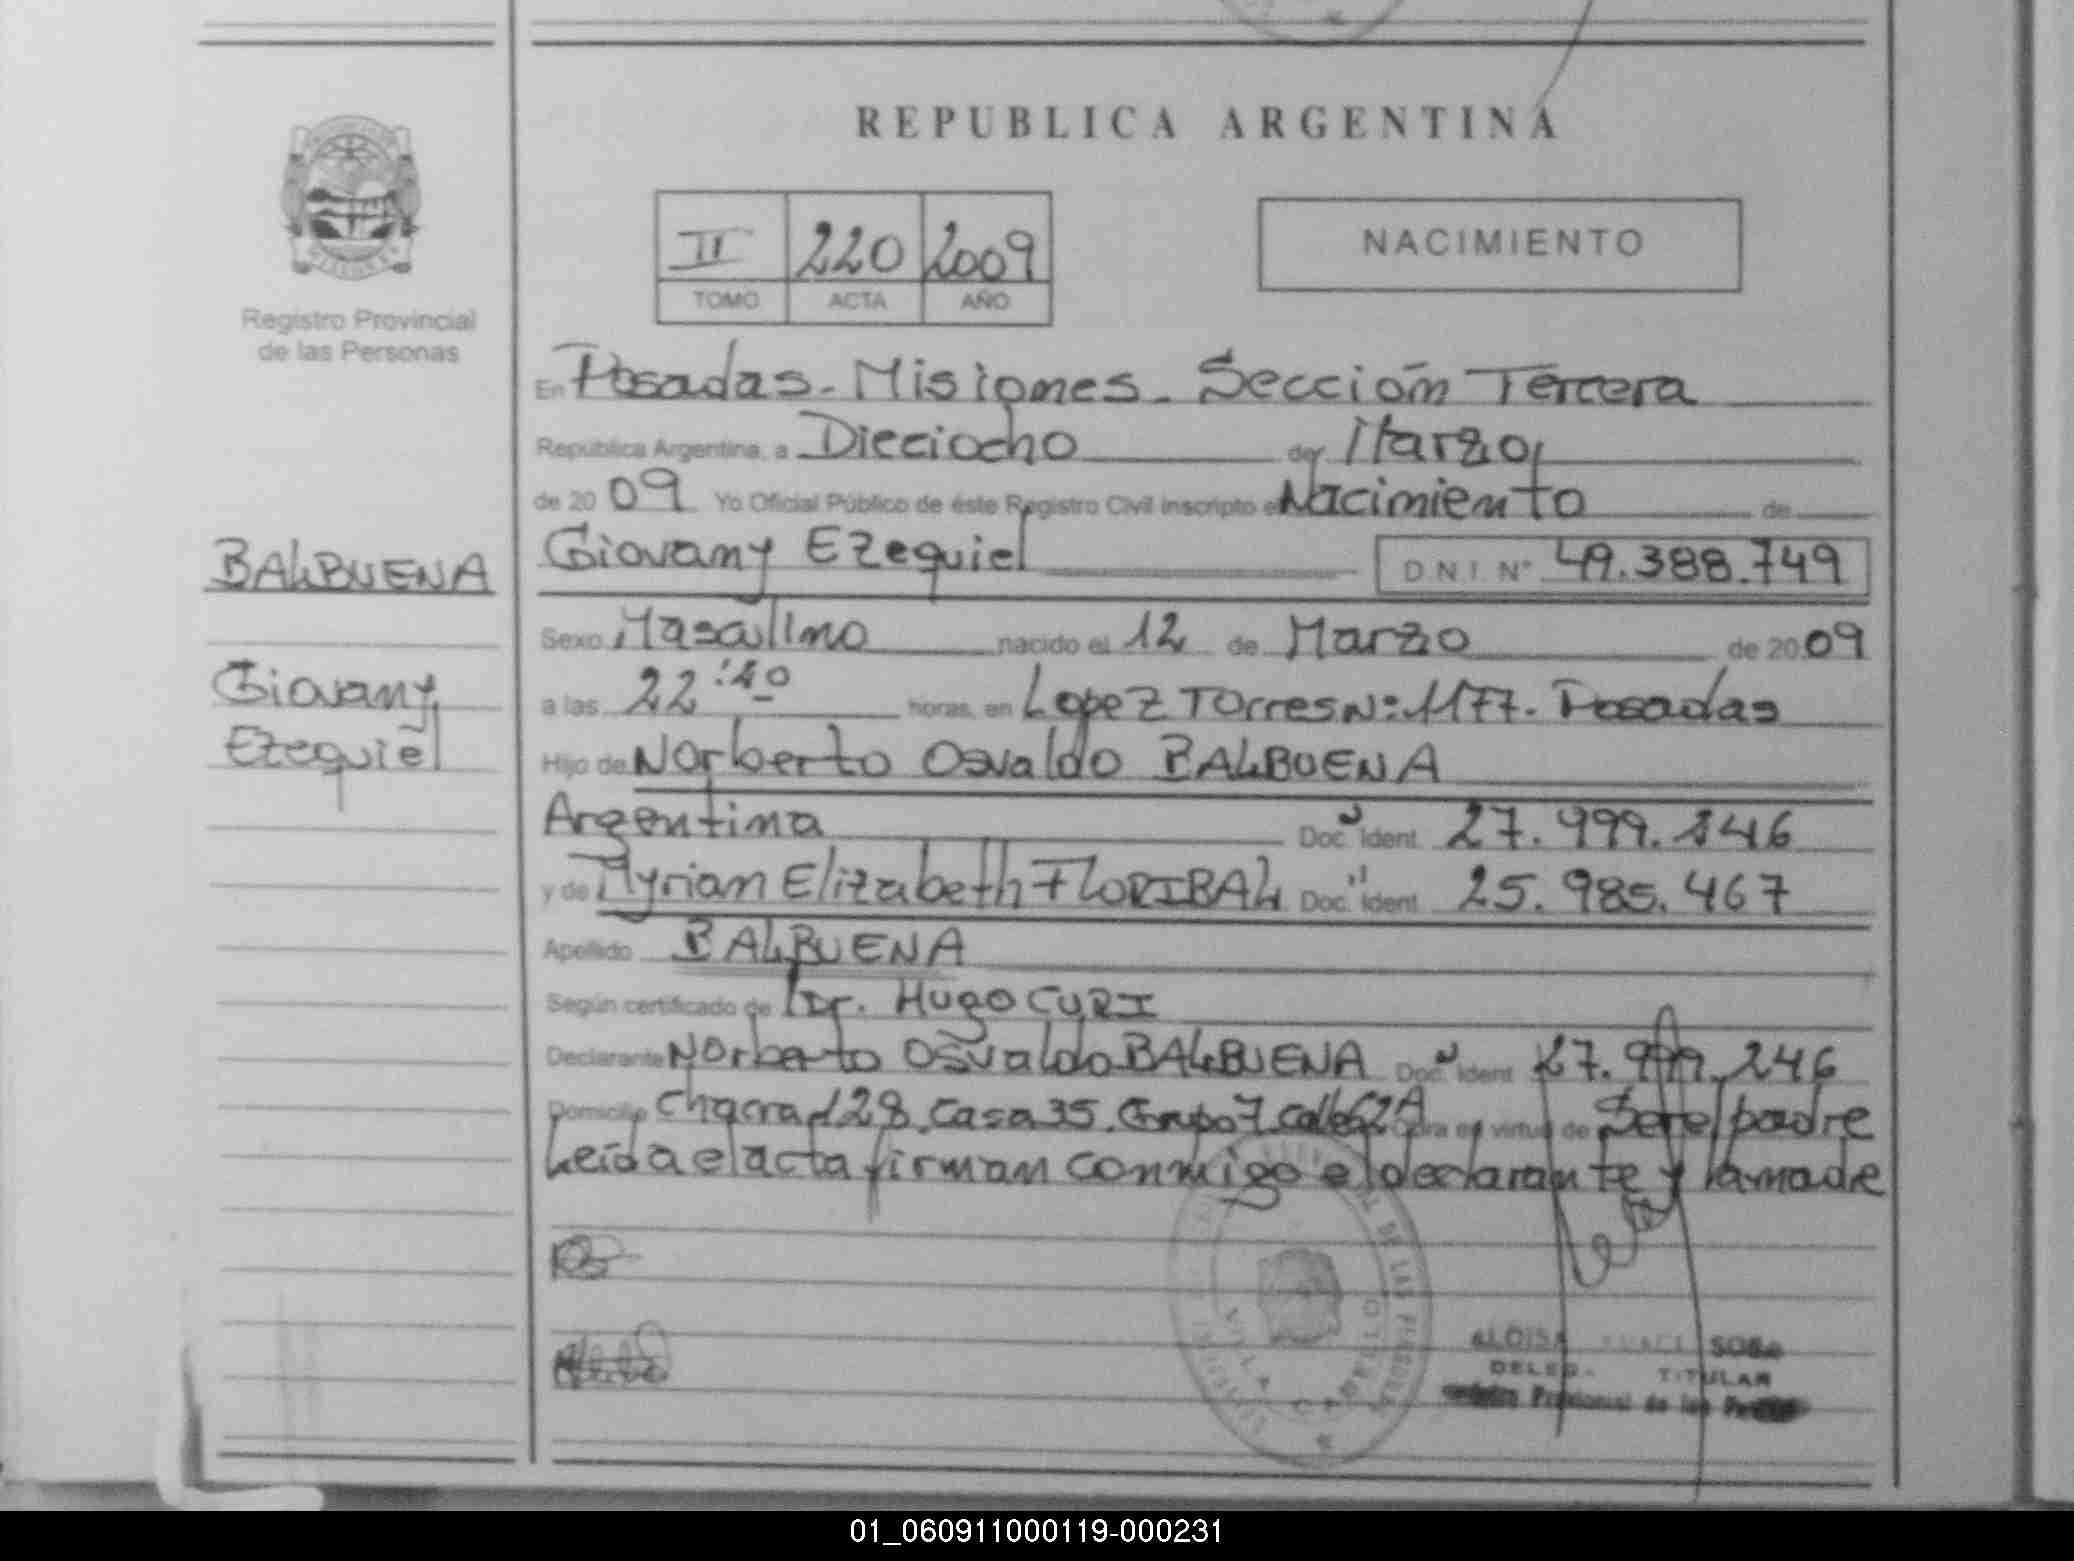 REPUBLICA ARGENTINA
II 220 2009
TOMO ACTA AÑO
NACIMIENTO
Registro Provincial
de las Personas
En Posadas - Misiones - Sección Tercera
República Argentina, a Dieciocho de Marzo
de 20 09 Yo Oficial Público de éste Registro Civil inscripto el Nacimiento de
BALBUENA
Giovany Ezequiel D.N.I. Nº 49.388.749
Sexo Masculino nacido el 12 de Marzo de 2009
Giovany
Ezequiel
a las 22:40 horas, en Lopez Torres Nº: 1177. Posadas
Hijo de Norberto Osvaldo BALBUENA
Argentina Doc. Ident. 27.999.246
y de Myrian Elizabeth FLORIBAL Doc. Ident. 25.985.467
Apellido BALBUENA
Según certificado de Dr. Hugo CURI
Declarante Norberto Osvaldo BALBUENA Doc. Ident 27.999.246
Domicilio Chacra 128. Casa 35. Grupo 7. Calle 62A en virtud de Ser el padre
Leída el acta firman conmigo el declarante y la madre
DE LAS PERSONAS
VILLA CABELLO
TITULAR
Provincial de las
01_060911000119-000231